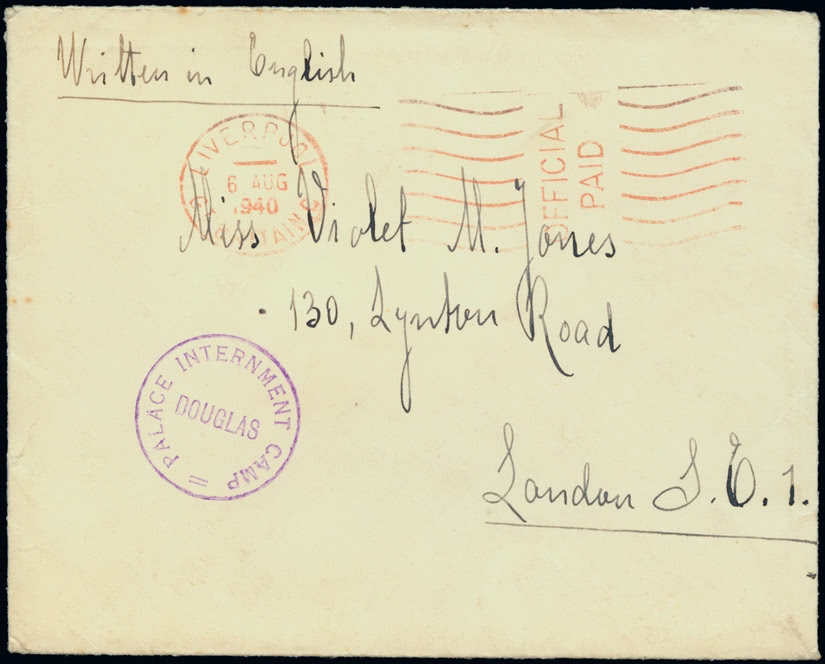 Written in English
LIVERPOOL
6 AUG
1940
OFFICIAL
PAID
Miss Violet M. Jones
130, Lynton Road
London S.E.1.
PALACE INTERNMENT CAMP =
DOUGLAS